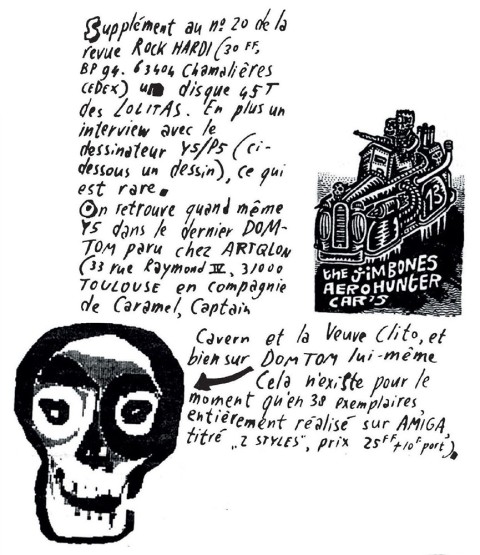 Supplément au nº 20 de la
revue ROCK HARDI (30 FF,
BP 94. 63404 Chamalières
CEDEX) un disque 45T
des LOLITAS. En plus un
interview avec le
dessinateur Y5/P5 (ci-
dessous un dessin), ce qui
est rare.
On retrouve quand même
Y5 dans le dernier DOM-
TOM paru chez ARTQLON
(33 rue Raymond IV, 31000
TOULOUSE en compagnie
de Caramel, Captain
Cavern et la Veuve Clito, et
bien sur DOM TOM lui-même
Cela n'existe pour le
moment qu'en 38 exemplaires,
entièrement réalisé sur AMIGA,
titré "2 STYLES", prix 25FF+10F port).
13
the JIMBONES
AEROHUNTER
CAR'S